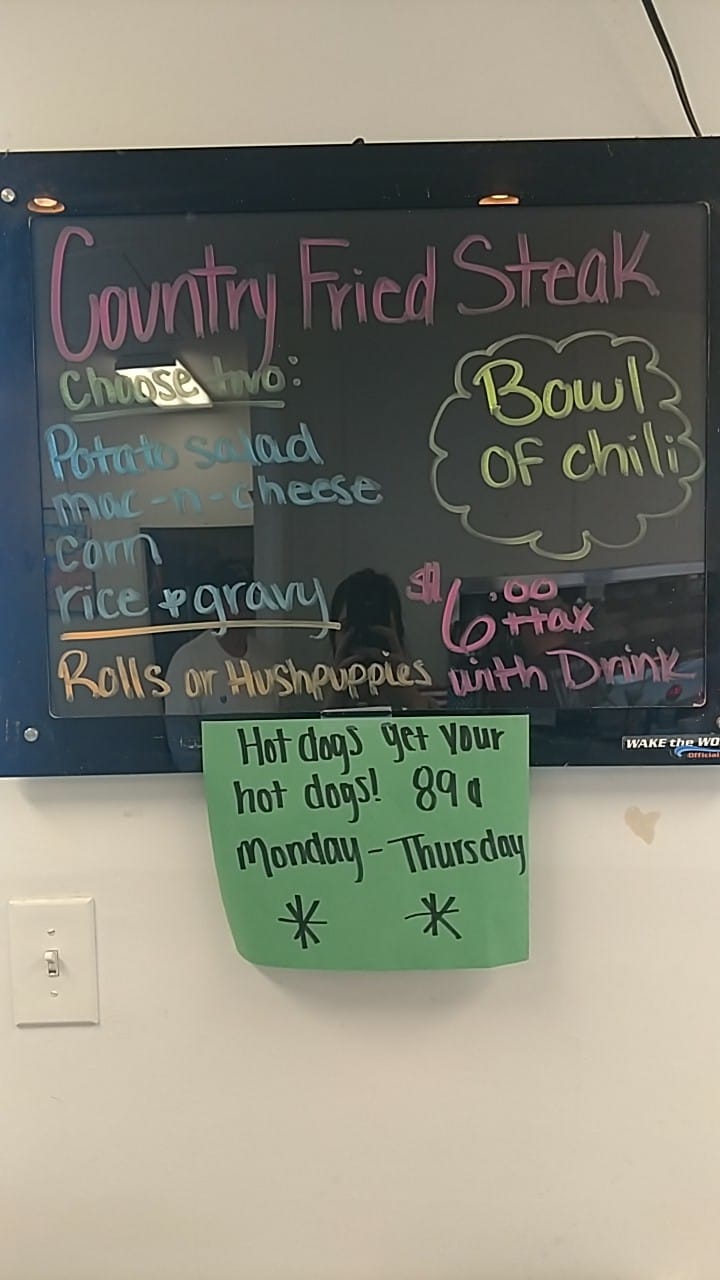 Country Fried Steak
Choose two:
Potato salad
mac-n-cheese
corn
rice & gravy
Rolls or Hushpuppies
Bowl
of chili
$6.00
+tax
with Drink
WAKE the WO
Official
Hot dogs get your
hot dogs! 89¢
Monday - Thursday
* *